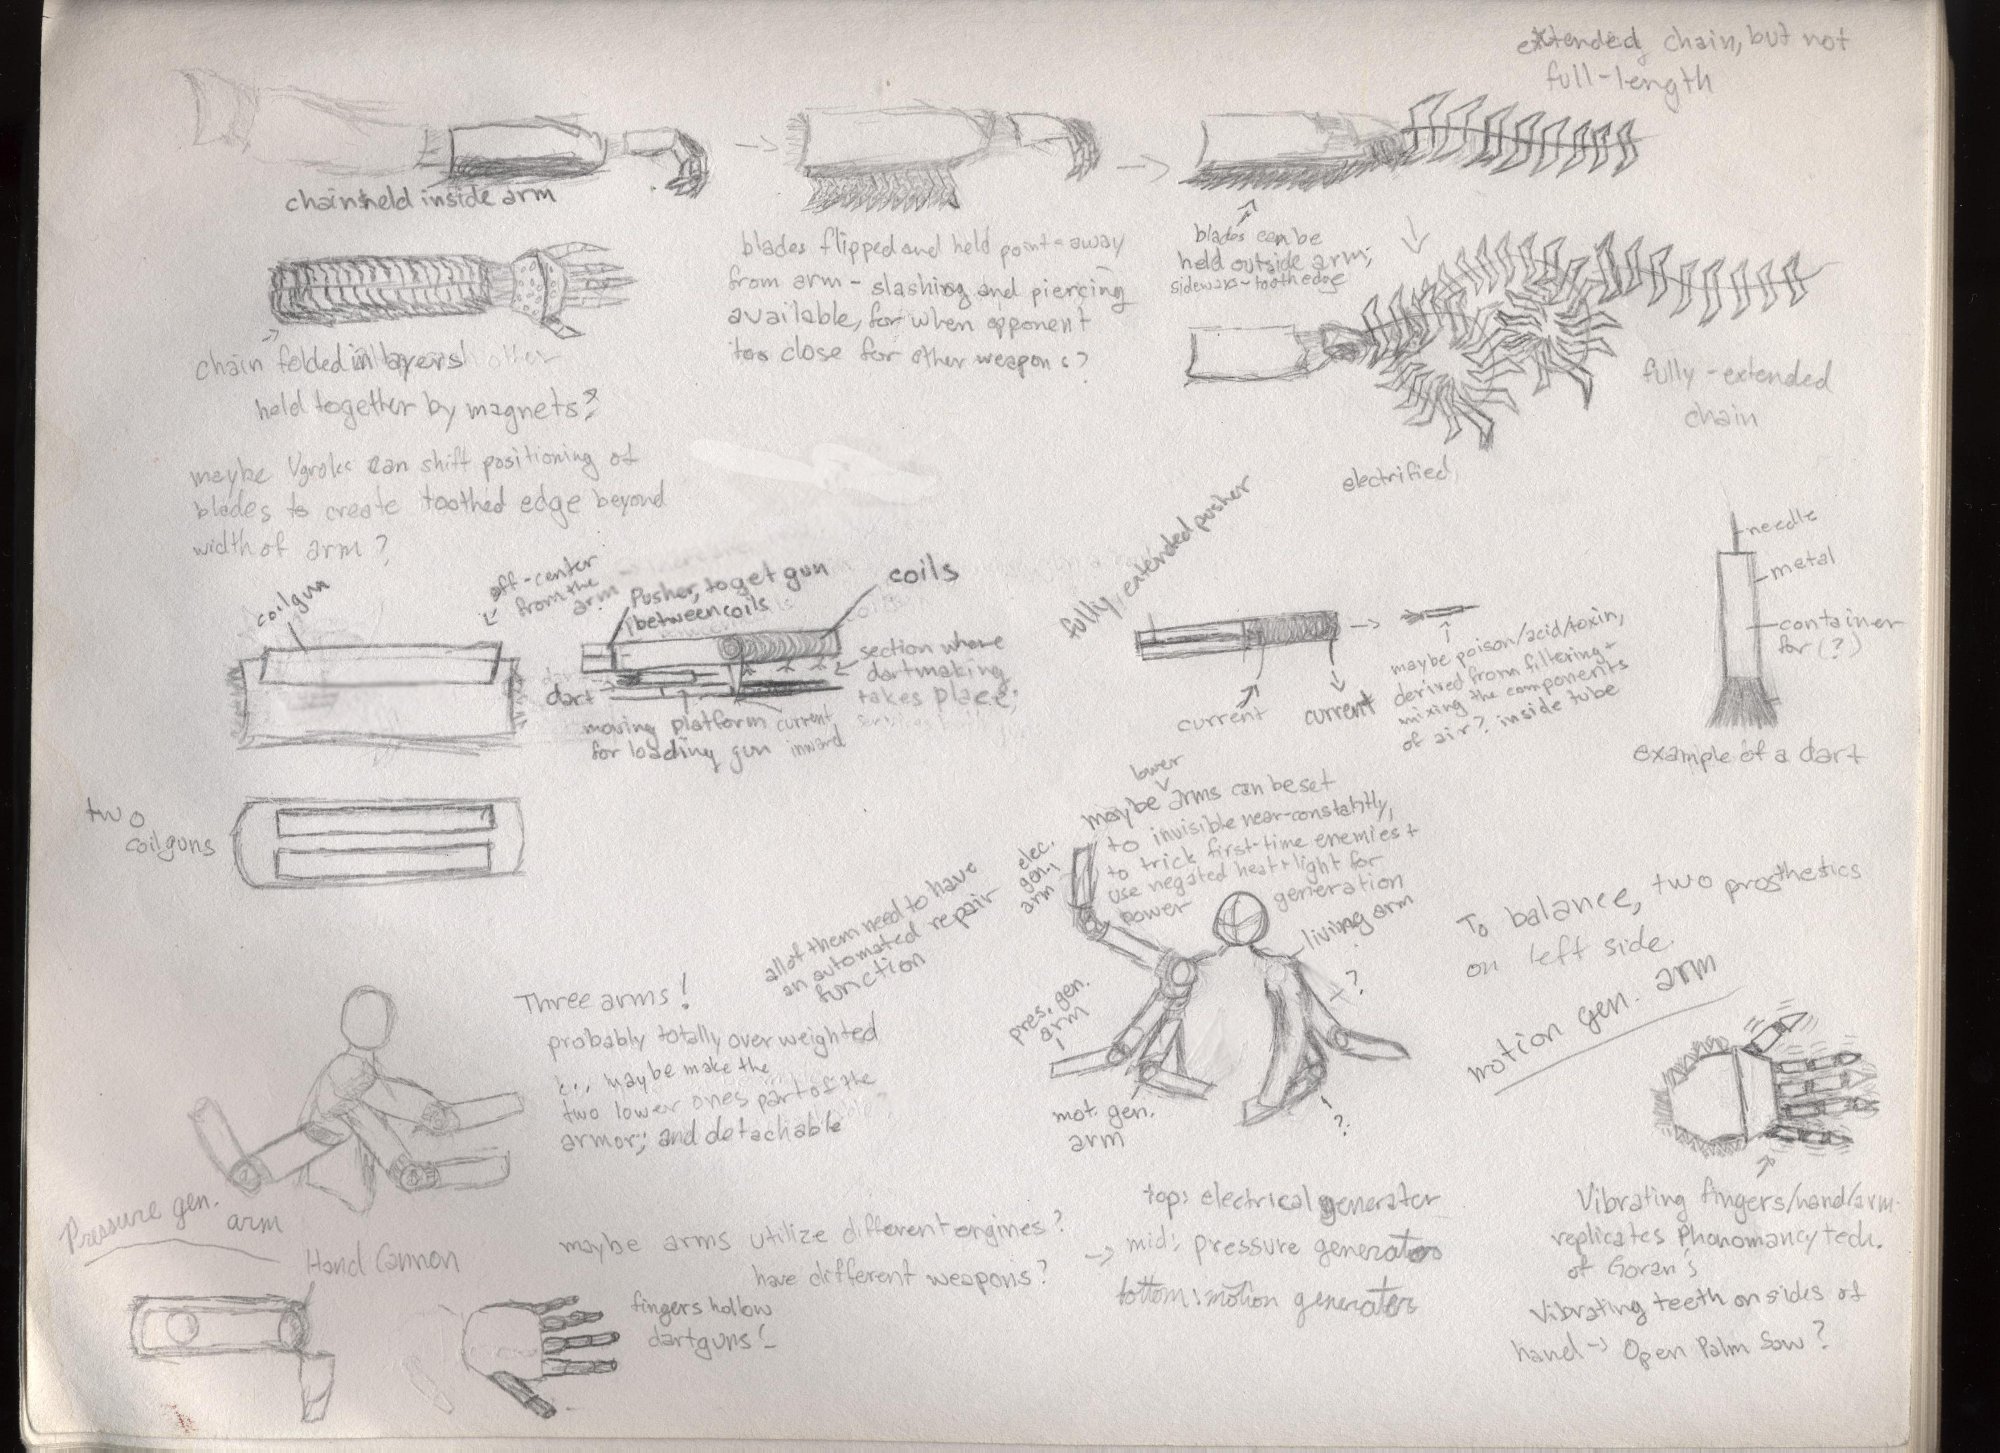 extended chain, but not
full-length
chain held inside arm
blades flipped and held point-away
from arm - slashing and piercing
available, for when opponent
too close for other weapons?
blades can be
held outside arm;
sideways - tooth edge
chain folded in layers
held together by magnets?
maybe Vgroke can shift positioning of
blades to create toothed edge beyond
width of arm?
fully-extended
chain
electrified
coilgun
off-center
from the
arm
Pusher, to get gun
between coils
coils
section where
dartmaking
takes place;
dart
moving platform
for loading gun
current
inward
fully extended pusher
current
current
maybe poison/acid/toxin,
derived from filtering +
mixing the components
of air?, inside tube
needle
metal
container
for (?)
example of a dart
two
coilguns
all of them need to have
an automated repair
function
maybe lower arms can be set
to invisible near-constantly,
to trick first-time enemies +
use negated heat + light for
power generation
elec.
gen.
arm
living arm
?
pres. gen.
arm
mot. gen.
arm
?
To balance, two prosthetics
on left side.
motion gen. arm
Three arms!
probably totally overweighted
maybe make the
two lower ones part of the
armor; and detachable
Pressure gen.
arm
Hand Cannon
maybe arms utilize different engines?
have different weapons?
top: electrical generator
-> mid: pressure generator
bottom: motion generator
fingers hollow
dartguns!
Vibrating fingers/hand/arm
replicates Phonomancy tech.
of Goran's
Vibrating teeth on sides of
hand -> Open Palm Saw?